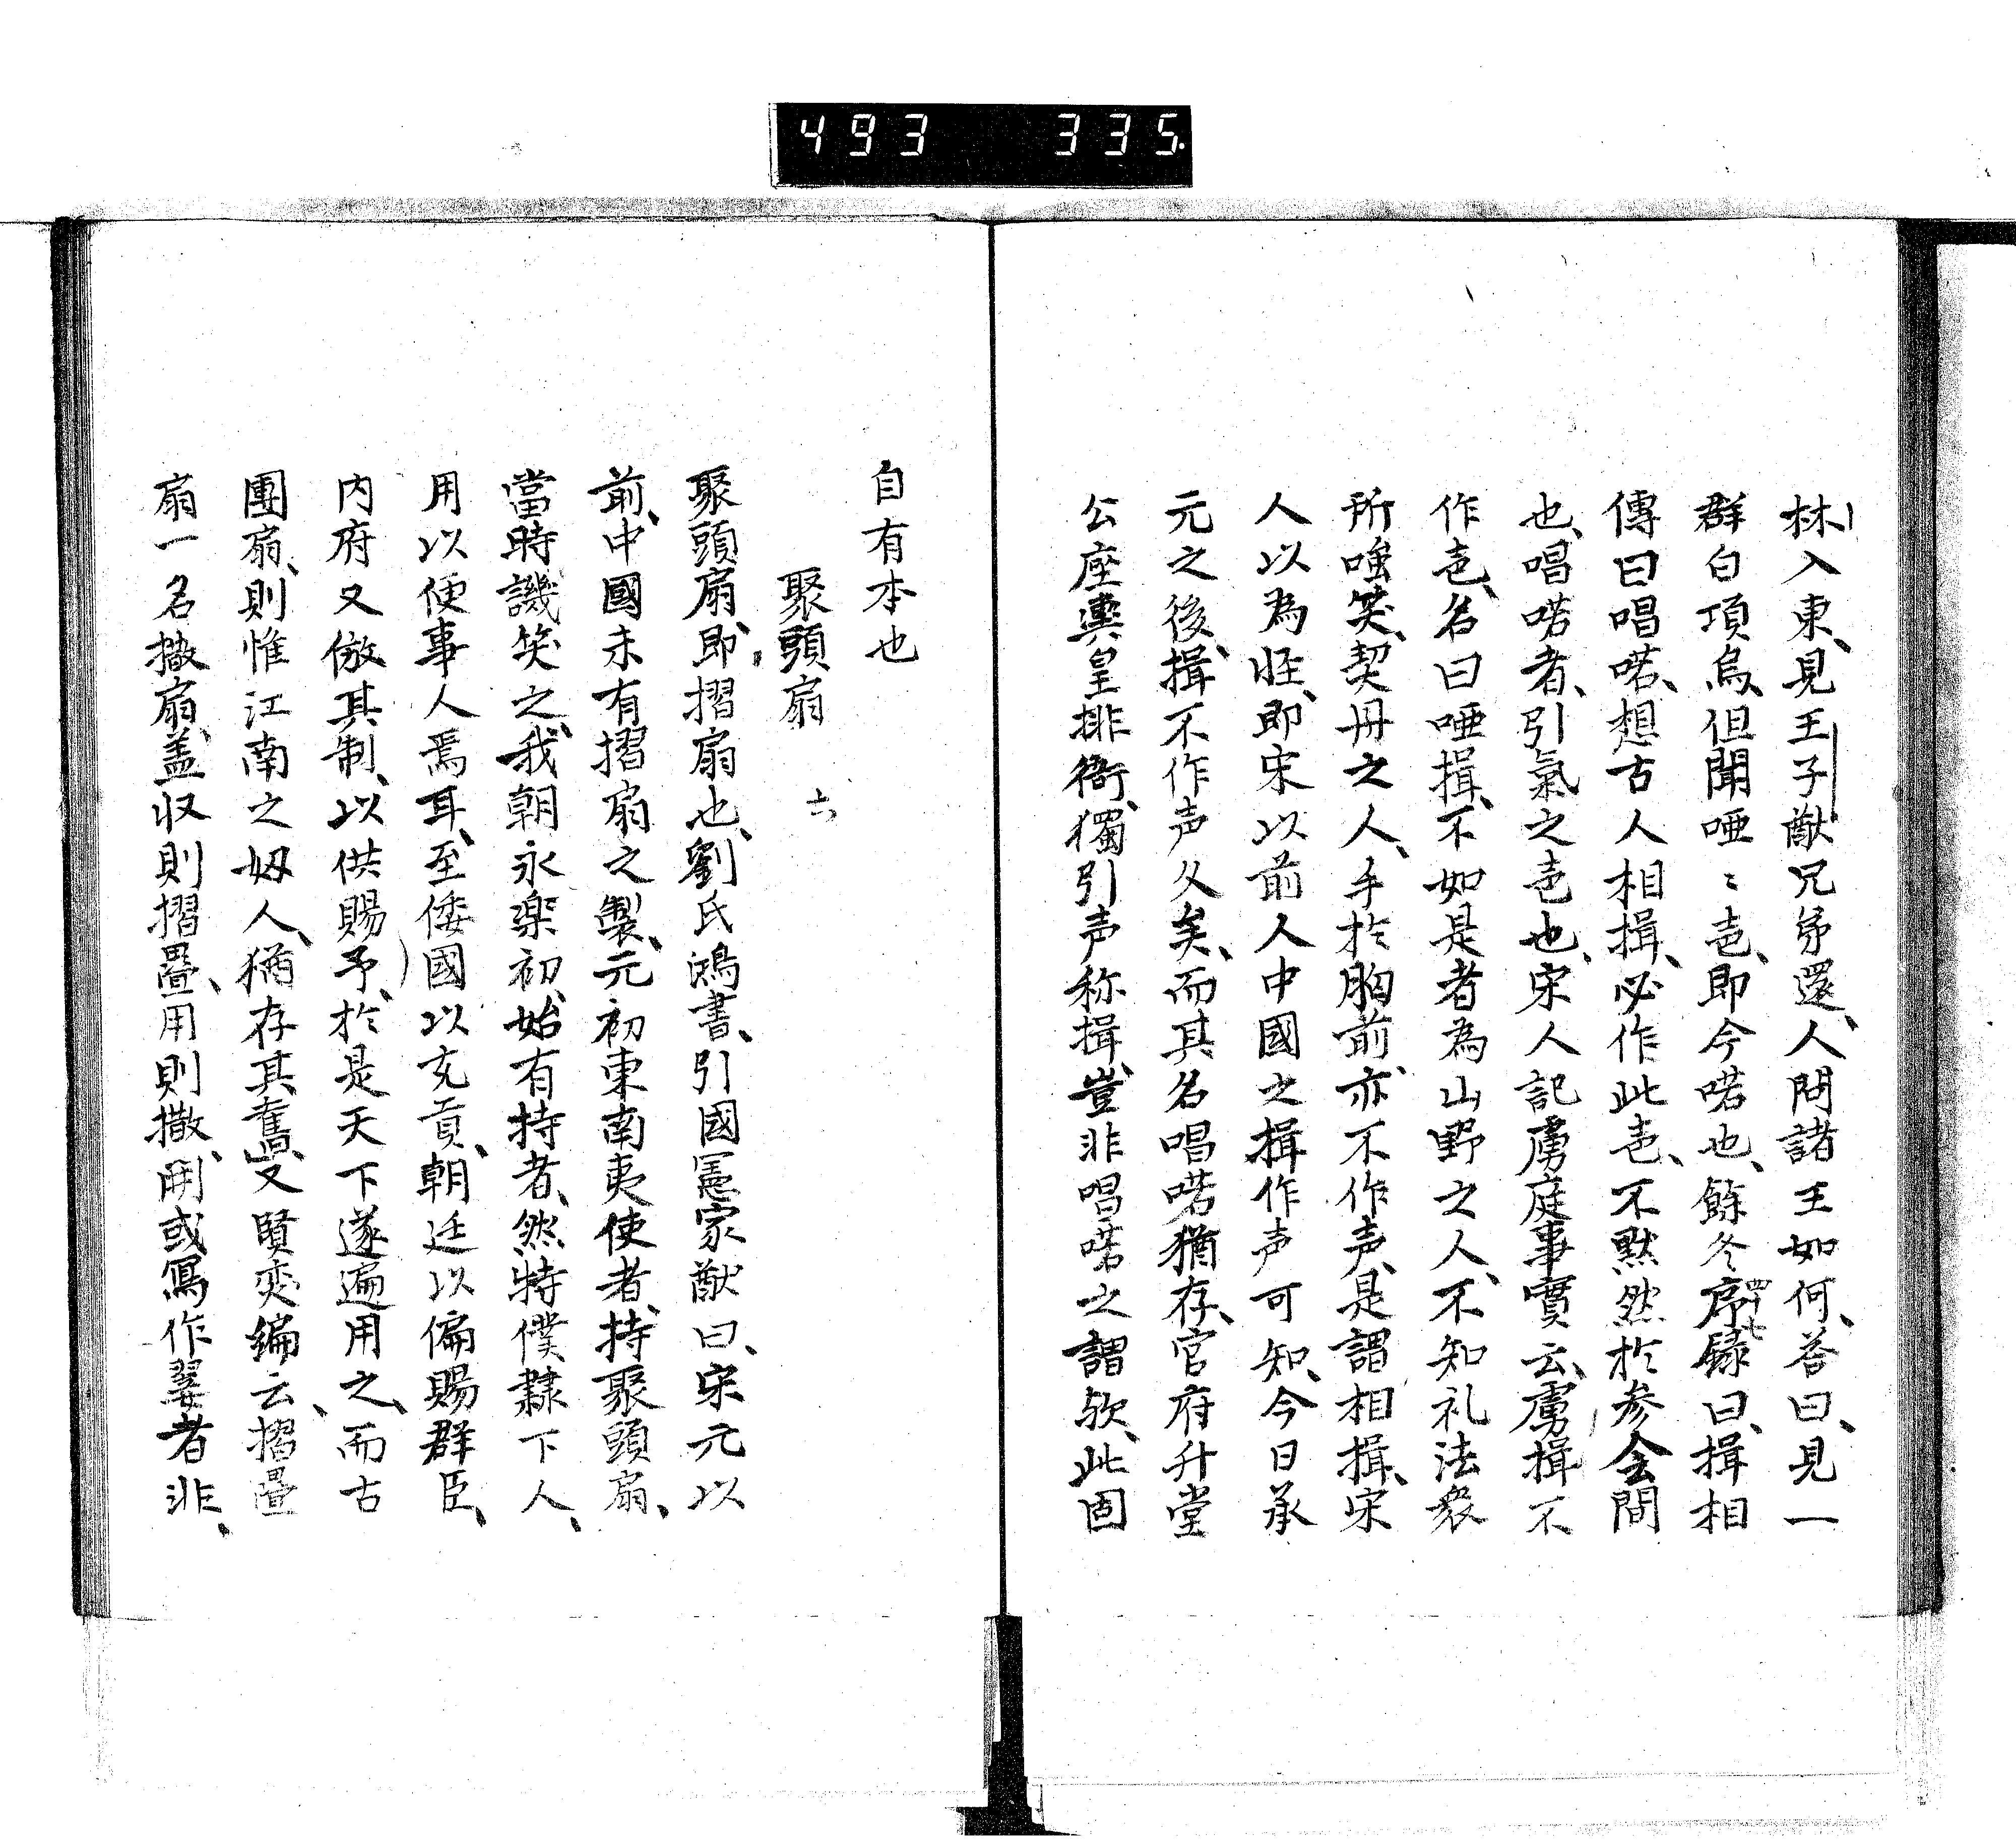 493 335.
林入東、見王子猷兄弟還、人問諸王如何、答曰、見一
群白項烏、但聞唖〻㐮、即今喏也、餘冬序録四十七曰、揖相
傳曰唱喏、想古人相揖、必作此㐮、不黙然於参会間
也、唱喏者、引氣之㐮也、宋人記虜庭事實云、虜揖不
作㐮、名曰唖揖、不如是者為山野之人、不知礼法衆
所嗤笑、契丹之人、手於胸前、亦不作声、是謂相揖、宋
人以為怪、即宋以前人中國之揖作声可知、今日承
元之後、揖不作声久矣、而其名唱喏猶存、官府升堂
公座輿皇排衙、獨引声称揖、豈非唱喏之謂欤、此固
自有本也
聚頭扇 六
聚頭扇、即摺扇也、劉氏鴻書、引國憲家猷曰、宋元以
前、中國未有摺扇之製、元初東南夷使者、持聚頭扇、
當時譏笑之、我朝永楽初、始有持者、然特僕隷下人、
用以便事人焉耳、至倭國以充貢、朝廷以偏賜群臣、
内府又倣其制、以供賜予、於是天下遂遍用之、而古
團扇、則惟江南之婦人、猶存其舊、又賢奕編云、摺疊
扇一名撒扇、盖収則摺疊、用則撒開、或寫作翣者非、